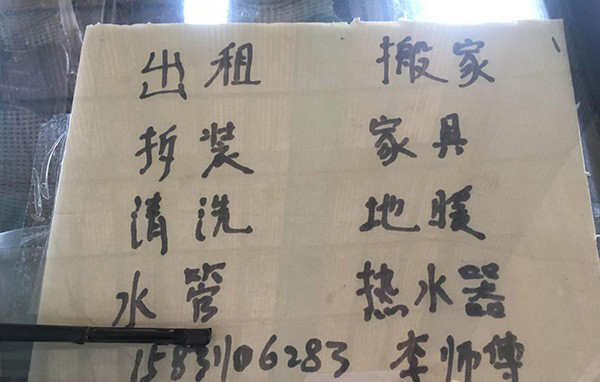 出租 搬家
拆装 家具
清洗 地暖
水管 热水器
15831906283 李师傅